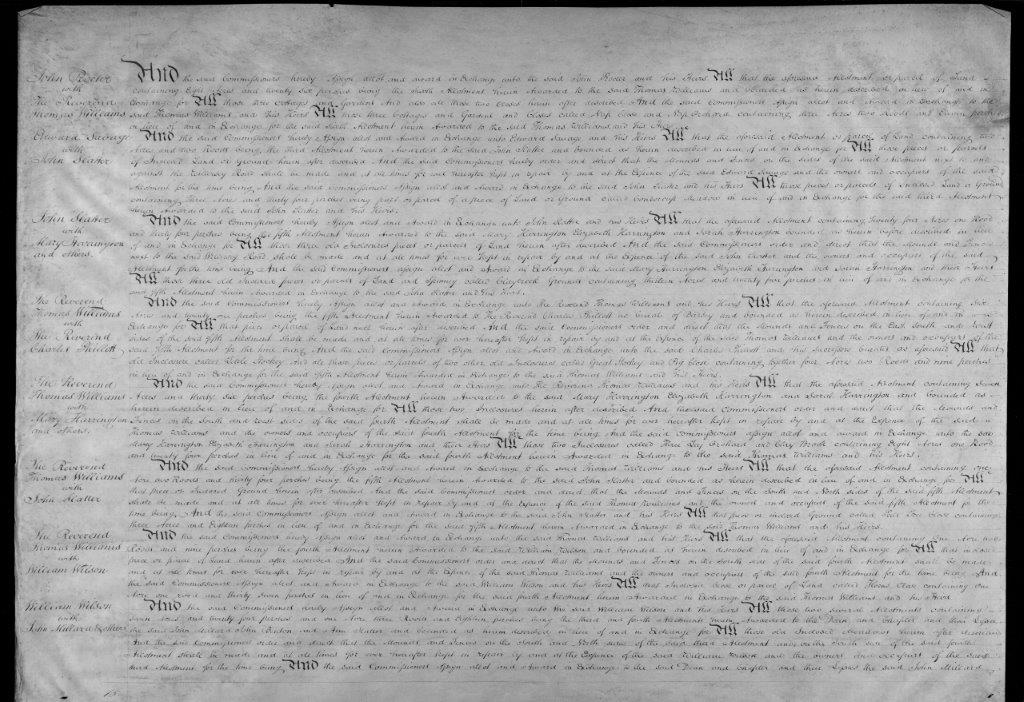 John Procter
with
The Reverend
Thomas Williams
And the said Commissioners hereby Assign allot and award in Exchange unto the said John Procter and his Heirs All that the aforesaid Allotment or parcel of Land
containing Eight Acres and twenty Six perches being the Allotment herein Awarded to the said Thomas Williams and bounded as herein described in lieu of and in
Exchange for All those three Cottages and Gardens And also all those two Closes herein after described And the said Commissioners Assign allot and Award in Exchange to the
said Thomas Williams and his Heirs All those three Cottages and Gardens and Closes called containing three Acres two Roods and perches
in lieu of and in Exchange for the said Allotment herein Awarded to the said Thomas Williams and his Heirs
Edward Savage
with
John Slatter
And the said Commissioners hereby Assign allot and Award in Exchange unto Edward Savage and his Heirs All that the aforesaid Allotment or parcel of Land containing two
Acres and two Roods being the third Allotment herein Awarded to the said John Slatter and bounded as herein described in lieu of and in Exchange for All those pieces or parcels
of Inclosed Land or Ground herein after described And the said Commissioners hereby order and direct that the Mounds and Fences on the sides of the said Allotment next to and
against the Road shall be made and at all times for ever hereafter kept in repair by and at the Expence of the said Edward Savage and the owners and occupiers of the said
Allotment for the time being And the said Commissioners Assign allot and Award in Exchange to the said John Slatter and his Heirs All those pieces or parcels of Inclosed Land or Ground
containing three Acres and thirty four perches being part of a piece of Land or Ground called Meadow in lieu of and in Exchange for the said third Allotment
herein Awarded to the said John Slatter and his Heirs
John Slatter
with
Mary Harrington
and others.
And the said Commissioners hereby Assign allot and Award in Exchange unto John Slatter and his Heirs All that the aforesaid Allotment containing Twenty four Acres one Rood
and thirty four perches being the fifth Allotment herein Awarded to the said Mary Harrington Elizabeth Harrington and Sarah Harrington bounded as herein before described in lieu
of and in Exchange for All those three old Inclosures pieces or parcels of Land herein after described And the said Commissioners order and direct that the Mounds and Fences
next to the said Road shall be made and at all times for ever kept in repair by and at the Expence of the said John Slatter and the owners and occupiers of the said
Allotment for the time being And the said Commissioners Assign allot and Award in Exchange to the said Mary Harrington Elizabeth Harrington and Sarah Harrington and their Heirs
All those three old Inclosed pieces or parcels of Land and Spinney called Grounds containing thirteen Acres and twenty four perches in lieu of and in Exchange for the
said fifth Allotment herein Awarded in Exchange to the said John Slatter and his Heirs
The Reverend
Thomas Williams
with
The Reverend
Charles Phillott
And the said Commissioners hereby Assign allot and Award in Exchange unto the Reverend Thomas Williams and his Heirs All that the aforesaid Allotment containing Six
Acres and twenty perches being the fifth Allotment herein Awarded to The Reverend Charles Phillott as and bounded as herein described in lieu of and in
Exchange for All that piece or parcel of Land next herein after described And the said Commissioners order and direct that the Mounds and Fences on the East South and West
sides of the said fifth Allotment shall be made and at all times for ever hereafter kept in repair by and at the Expence of the said Thomas Williams and the owners and occupiers of the
said fifth Allotment for the time being And the said Commissioners Assign allot and Award in Exchange unto the said Charles Phillott and his Successors as aforesaid All that
old Inclosure called And all those pieces or parcels of two other old Inclosures called Great and Close containing together four Acres Roods and nine perches
in lieu of and in Exchange for the said fifth Allotment herein Awarded in Exchange to the said Thomas Williams and his Heirs
The Reverend
Thomas Williams
with
Mary Harrington
and others.
And the said Commissioners hereby Assign allot and Award in Exchange unto The Reverend Thomas Williams and his Heirs All that the aforesaid Allotment containing Seven
Acres and thirty Six perches being the fourth Allotment herein Awarded to the said Mary Harrington Elizabeth Harrington and Sarah Harrington and bounded as
herein described in lieu of and in Exchange for All those two Inclosures herein after described And the said Commissioners order and direct that the Mounds and
Fences on the South and East sides of the said fourth Allotment shall be made and at all times for ever hereafter kept in repair by and at the Expence of the said
Thomas Williams and the owners and occupiers of the said fourth Allotment for the time being And the said Commissioners Assign allot and award in Exchange unto the said
Mary Harrington Elizabeth Harrington and Sarah Harrington and their Heirs All those two Inclosures called and containing Eight Acres one Rood
and twenty four perches in lieu of and in Exchange for the said fourth Allotment herein Awarded in Exchange to the said Thomas Williams and his Heirs
The Reverend
Thomas Williams
with
John Slatter
And the said Commissioners hereby Assign allot and Award in Exchange to the said Thomas Williams and his Heirs All that the aforesaid Allotment containing one
Acre two Roods and thirty four perches being the fifth Allotment herein Awarded to the said John Slatter and bounded as herein described in lieu of and in Exchange for All
that piece or Inclosed Ground herein after described And the said Commissioners order and direct that the Mounds and Fences on the South and North sides of the said fifth Allotment
shall be made and at all times for ever hereafter kept in repair by and at the Expence of the said Thomas Williams and the owners and occupiers of the said fifth Allotment for the
time being And the said Commissioners Assign allot and award in Exchange to the said John Slatter and his Heirs All that piece or Inclosed Ground called Close containing
three Acres and Eighteen perches in lieu of and in Exchange for the said fifth Allotment herein Awarded in Exchange to the said Thomas Williams and his Heirs
The Reverend
Thomas Williams
with
William Wilson
And the said Commissioners hereby Assign allot and Award in Exchange unto the said Thomas Williams and his Heirs All that the aforesaid Allotment containing one Acre two
Roods and nine perches being the fourth Allotment herein Awarded to the said William Wilson and bounded as herein described in lieu of and in Exchange for All that inclosed
piece or parcel of Land herein after described And the said Commissioners order and direct that the Mounds and Fences on the South side of the said fourth Allotment shall be made
and at all times for ever hereafter kept in repair by and at the Expence of the said Thomas Williams and the owners and occupiers of the said fourth Allotment for the time being And
the said Commissioners Assign allot and Award in Exchange to the said William Wilson and his Heirs All that Inclosure Close or parcel of Land called containing one
Acre one rood and thirty seven perches in lieu of and in Exchange for the said fourth Allotment herein Awarded in Exchange to the said Thomas Williams and his Heirs
William Wilson
with
John Millard & others
And the said Commissioners hereby Assign allot and Award in Exchange unto the said William Wilson and his Heirs All those two several Allotments containing
seven Acres and twenty four perches and one Acre three Roods and Eighteen perches being the third and fourth Allotments herein Awarded to the Dean and Chapter and their Lessees
the said John Millard John and Ann Slatter and bounded as herein described in lieu of and in Exchange for All those old Inclosed Meadows herein after described
And the said Commissioners order and direct that the Mounds and Fences on the South and North sides of the said third Allotment and on the North side of the said fourth
Allotment shall be made and at all times for ever hereafter kept in repair by and at the Expence of the said William Wilson and the owners and occupiers of the said
third Allotment for the time being And the said Commissioners Assign allot and Award in Exchange to the said Dean and Chapter and their Lessees the said John Millard